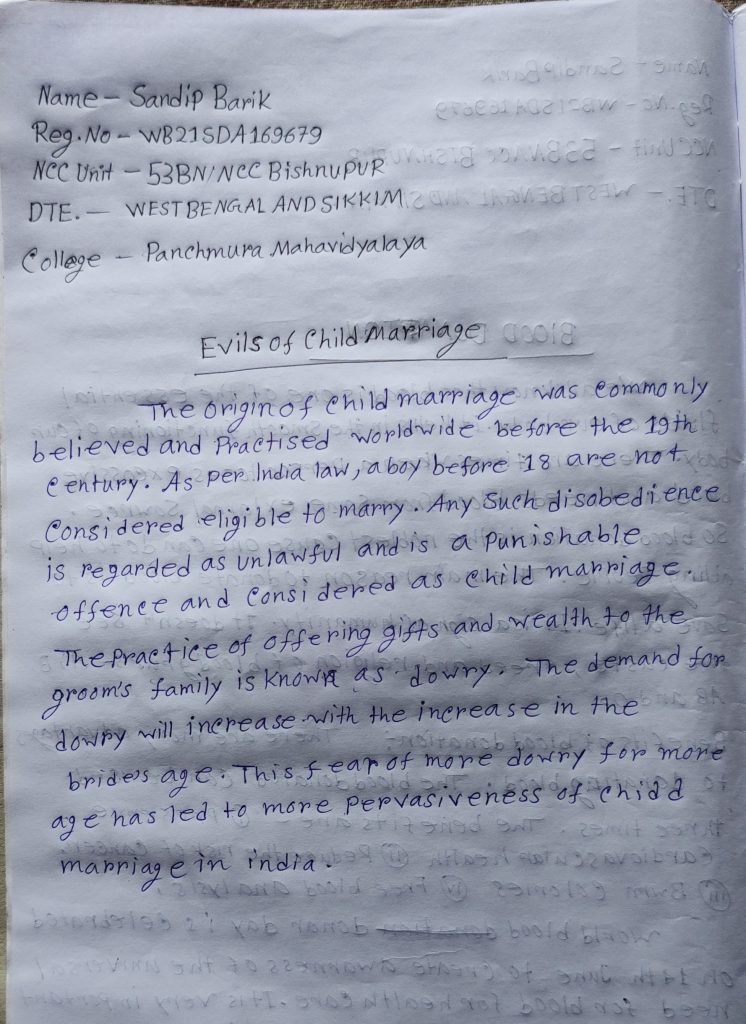 Name - Sandip Barik
Reg. No - WB21SDA169679
NCC Unit - 53BN/NCC BishnuPUR
DTE. - WEST BENGAL AND SIKKIM
College - Panchmura Mahavidyalaya
Evils of Child Marriage
The origin of child marriage was commonly
believed and Practised worldwide before the 19th
century. As per India law, a boy before 18 are not
Considered eligible to marry. Any Such disobedience
is regarded as unlawful and is a Punishable
offence and Considered as child marriage.
The Practice of offering gifts and wealth to the
groom's family is known as dowry. The demand for
dowry will increase with the increase in the
bride's age. This fear of more dowry for more
age has led to more pervasiveness of chidd
marriage in india.